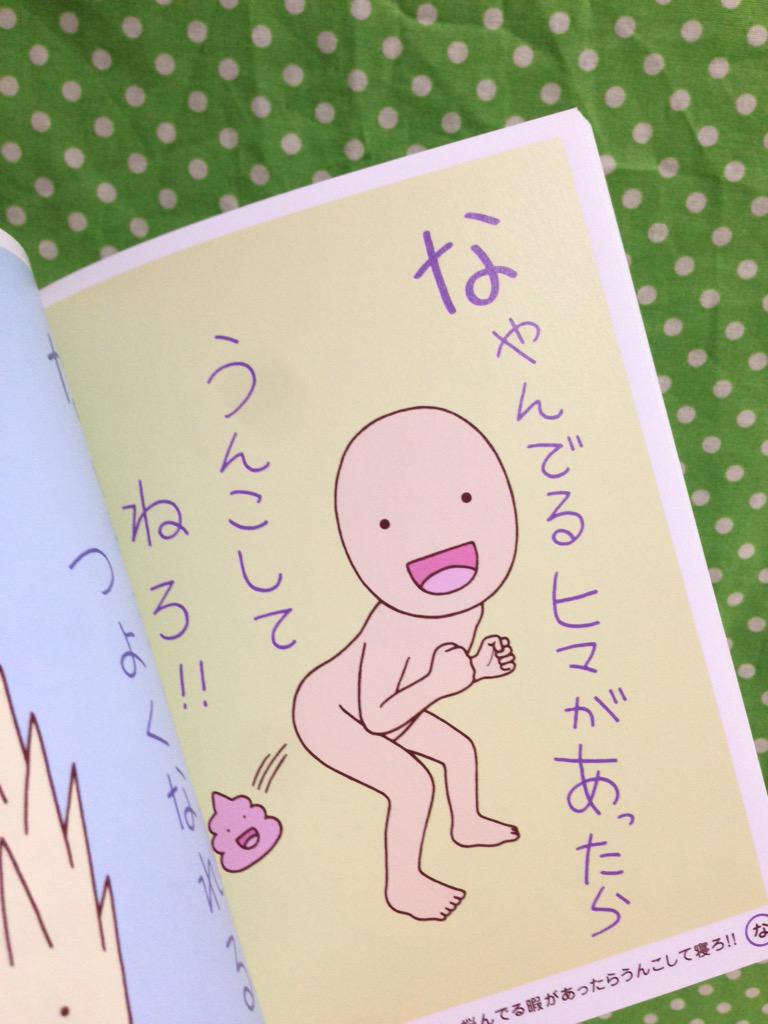 なやんでるヒマがあったら
うんこして
ねろ!!
つよくなれる
悩んでる暇があったらうんこして寝ろ!!
な